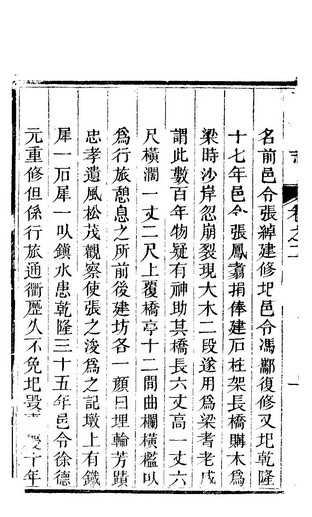 名前邑令張綽建修圯邑令馮酈復修又圯乾隆
十七年邑令張鳳翥捐俸建石柱架長橋購木為
梁時沙岸忽崩裂現大木二段遂用為梁耆老咸
謂此數百年物疑有神助其橋長六丈高一丈六
尺橫濶一丈二尺上覆橋亭十二間曲欄橫檻以
為行旅憩息之所前後建坊各一顏曰埋輪芳蹟
忠孝遺風松茂觀察使張之浚為之記墩上有鐵
犀一石犀一以鎮水患乾隆三十五年邑令徐德
元重修但係行旅通衢歷久不免圯毀 十年